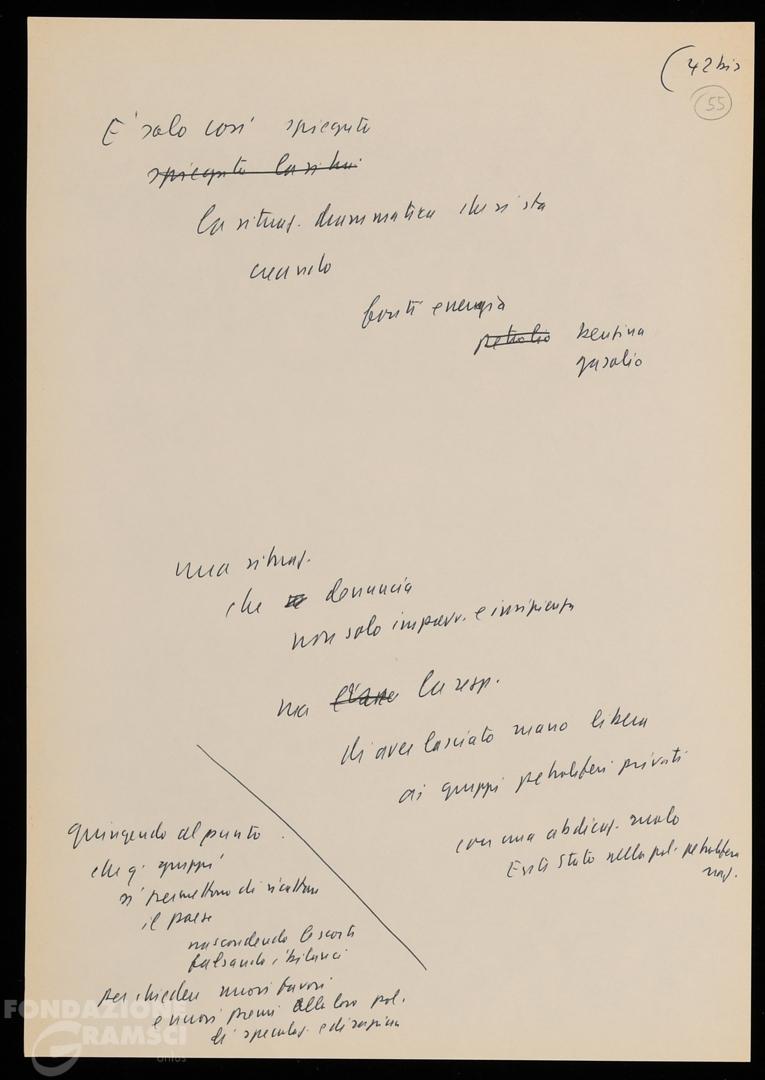 (42 bis
55
E' solo così spiegata
spiegata la situ.
la situaz. drammatica che si sta
creando
fonti energia
petrolio benzina
gasolio
una situaz.
che denuncia
non solo imprevv. e insipienza
ma la resp.
di aver lasciato mano libera
ai gruppi petroliferi privati
con una abdicaz. ruolo
Enti Stato nella pol. petrolifera
naz.
giungendo al punto
che q. gruppi
si permettono di ricattare
il paese
nascondendo le scorte
falsando i bilanci
per chiedere nuovi favori
e nuovi premi alla loro pol.
di speculaz. e di rapina
FONDAZIONE
GRAMSCI
onlus